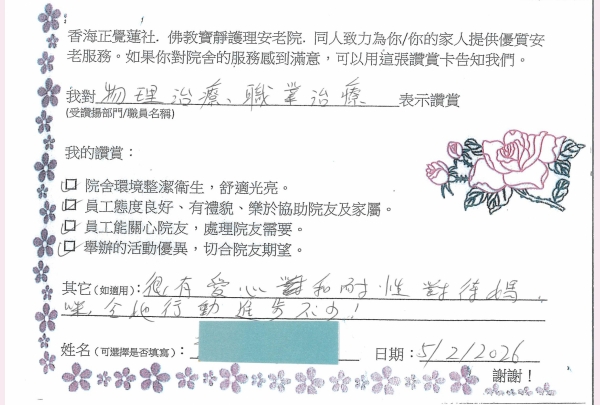 香海正覺蓮社．佛教寶靜護理安老院．同人致力為你/你的家人提供優質安
老服務。如果你對院舍的服務感到滿意，可以用這張讚賞卡告知我們。
我對 物理治療、職業治療 表示讚賞
(受讚揚部門/職員名稱)
我的讚賞：
院舍環境整潔衛生，舒適光亮。
員工態度良好、有禮貌、樂於協助院友及家屬。
員工能關心院友，處理院友需要。
舉辦的活動優異，切合院友期望。
其它(如適用)：很有愛心和耐性對待媽
咪，令她行動進步不少！
姓名(可選擇是否填寫)：
日期：5/2/2026
謝謝！